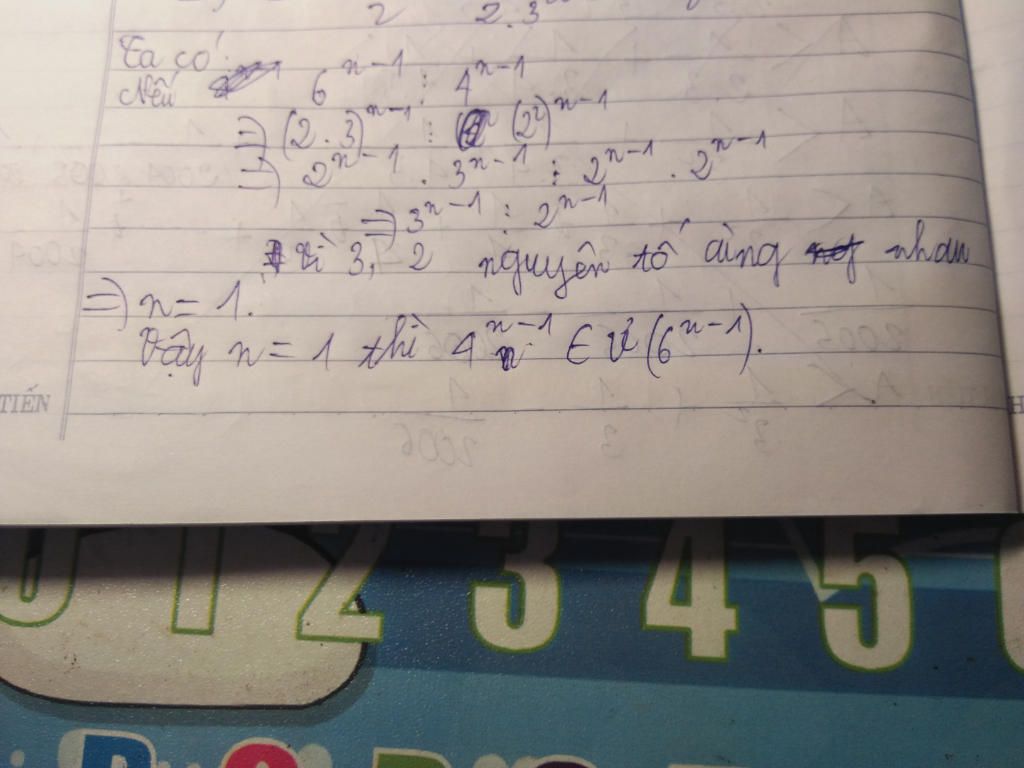 2 2.3
Ta có:
Nếu 6^{n-1} ⋮ 4^{n-1}
=> (2.3)^{n-1} ⋮ (2²)^{n-1}
=> 2^{n-1} . 3^{n-1} ⋮ 2^{n-1} . 2^{n-1}
=> 3^{n-1} ⋮ 2^{n-1}
vì 3, 2 nguyên tố cùng nhau
=> n = 1.
Vậy n = 1 thì 4^{n-1} ∈ Ư(6^{n-1}).
TIẾN
H
0 1 2 3 4 5